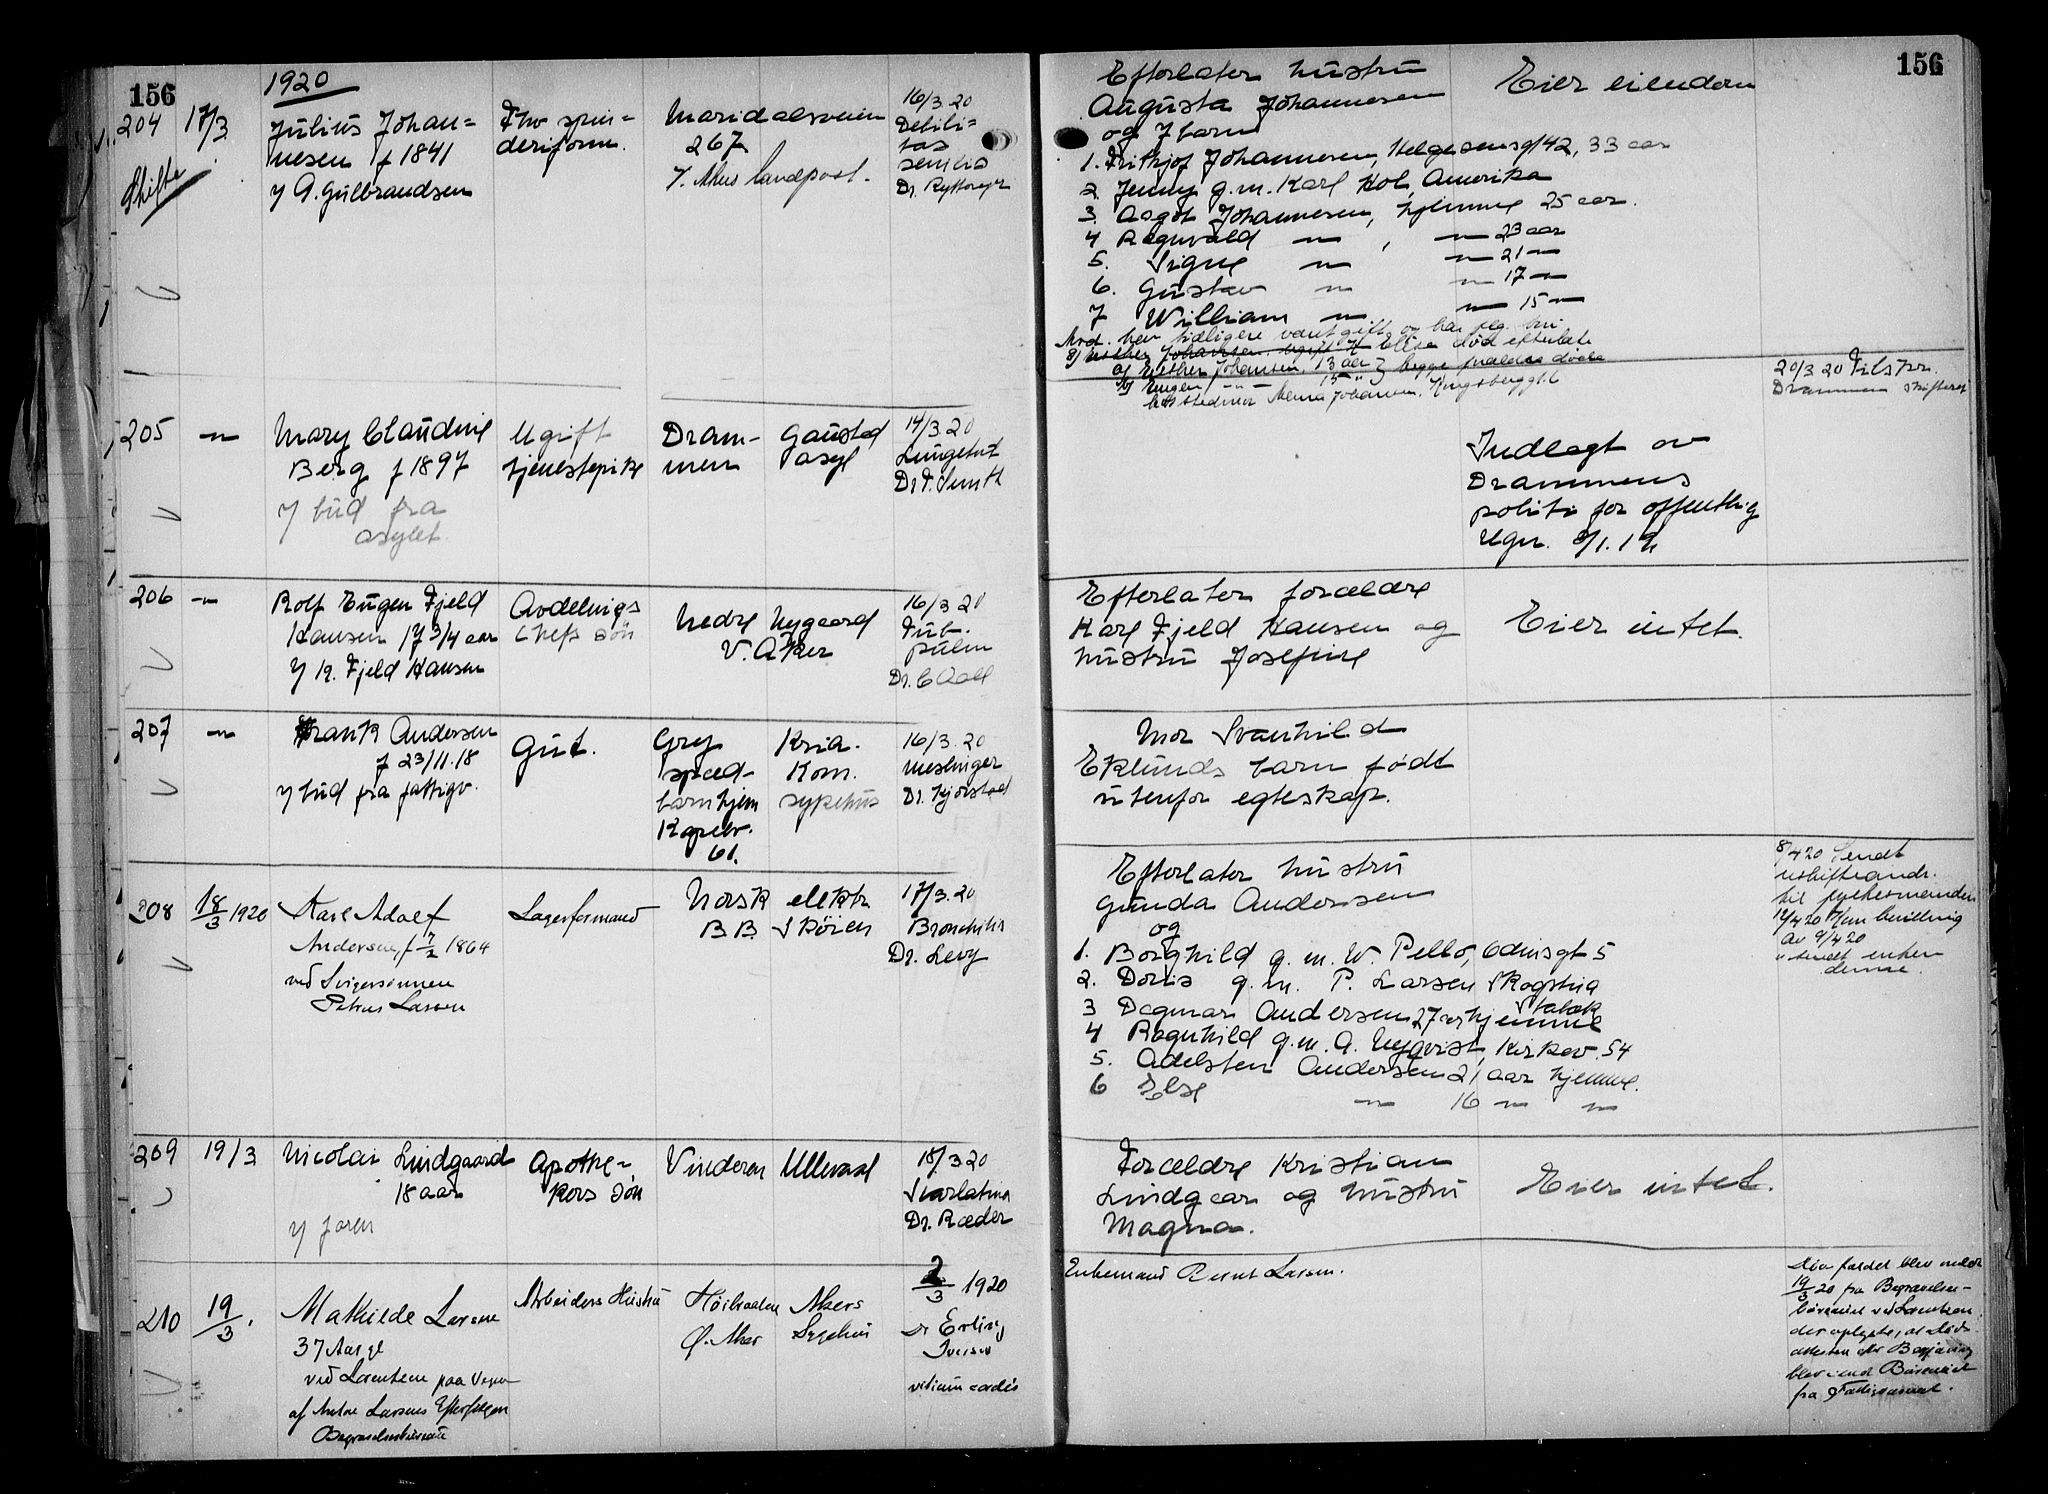 156
1920
204 17/3 Julius Johan= Fhv spin= Maridalsveien 16/3.20
nesen f 1841 deriform. 267 Debili=
Skifte V. Aker landpost. tas
v/ A. Gulbrandsen senilis
Dr.
205 — Mary Claudine Ugift Dram- Gaustad 14/3.20
Berg f 1897 tjenestepike men asyl Lungetub
v/ bud fra Dr. F. Smith
asylet.
206 — Rolf Eugen Fjeld Avdelings Nedre Nygaard 16/3 20
Hansen 17 3/4 aar chefs søn V. Aker Tub.
v/ K. Fjeld Hansen pulm
Dr. C Aall
207 — Frank Andersen Gut. Grey Kria. 16/3.20
f 23/11.18 spæd- Kom. Meslinger
v/ bud fra fattigv. barnhjem sykehus Dr. Kjølstad
61.
208 18/3 1920 Karl Adolf Lagerformand Norsk elektr 17/3.20
Andersen, f 1864 B.B. Skøien Bronchitis
ved Svigersønnen Dr. Levy
Petrus Larsen
209 19/3 Nicolai Lindgaard Apothe- Vinderen Ullevaal 18/3 20
18 aar kers søn Scarlatina
v/ faren Dr. Ræder
210 19/3. Mathilde Larsen Arbeiders Hustru Høibraaten Akers 2/3 1920
37 Aar gl Ø. Aker Sygehus Dr Erling
ved Lorentzen paa Iversen
af Larsens Efterfølgers vitium cordis
Begravelsesbureau
156
Efterlater hustru Eier eiendom
Augusta Johannesen
og 7 barn
1. Fritjof Johannesen, Helgesensgt 42, 33 aar
2. Jenny g.m. Karl Hol, Amerika
3. Asgot Johannesen, hjemme 25 aar.
4 Ragnvald — , — 23 aar
5. Signe — — 21 —
6. Gustav — — 17 —
7 William — — 15 —
Avd. har tidligere vært gift og har
død efterlatt
a/ Esther Johansen, 13 aar } begge forældre døde
b/ Eugen — 15 "
Johansen, Kongsberggt. 6
20/3 20 Tilskr.
Drammen skifteret
Indlagt av
Drammens
politi for offentlig
regn.
Efterlater forældre
Karl Fjeld Hansen og Eier intet.
hustru Josefine
Mor Svanhild
Eklunds barn født
utenfor egteskap.
Efterlater hustru
Gunda Andersen
og
1. Borghild g.m. W. Pello, Odinsgt 5
2. Doris g.m. P. Larsen Skogstua
Stabæk
3 Dagmar Andersen 27 aar hjemme
4 Ragnhild g.m. A. Nyqvist, Kirkev. 54
5. Adelsten Andersen 21 aar hjemme.
6 Else — 16 — —
8/4 20 Sendt
uskifteandr.
til fylkesmanden
12/4 20 bevilling
av 9/4 20
sendt enken
denne.
Forældre Kristian
Lindgaar og hustru Eier intet.
Magna.
Enkemand Bernt Larsen.
blev meldt
19/3 20 fra Begravelses-
bureauet ved Lorentzen,
der oplyste, at Døds-
attesten
blev Bureauet
fra Fattigvæsenet.